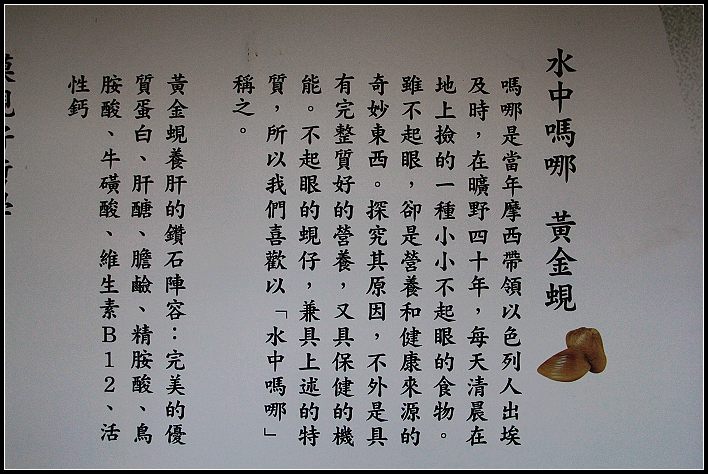 水中嗎哪　黃金蜆
嗎哪是當年摩西帶領以色列人出埃
及時，在曠野四十年，每天清晨在
地上撿的一種小小不起眼的食物。
雖不起眼，卻是營養和健康來源的
奇妙東西。探究其原因，不外是具
有完整質好的營養，又具保健的機
能。不起眼的蜆仔，兼具上述的特
質，所以我們喜歡以「水中嗎哪」
稱之。
黃金蜆養肝的鑽石陣容：完美的優
質蛋白、肝醣、膽鹼、精胺酸、鳥
胺酸、牛磺酸、維生素B12、活
性鈣